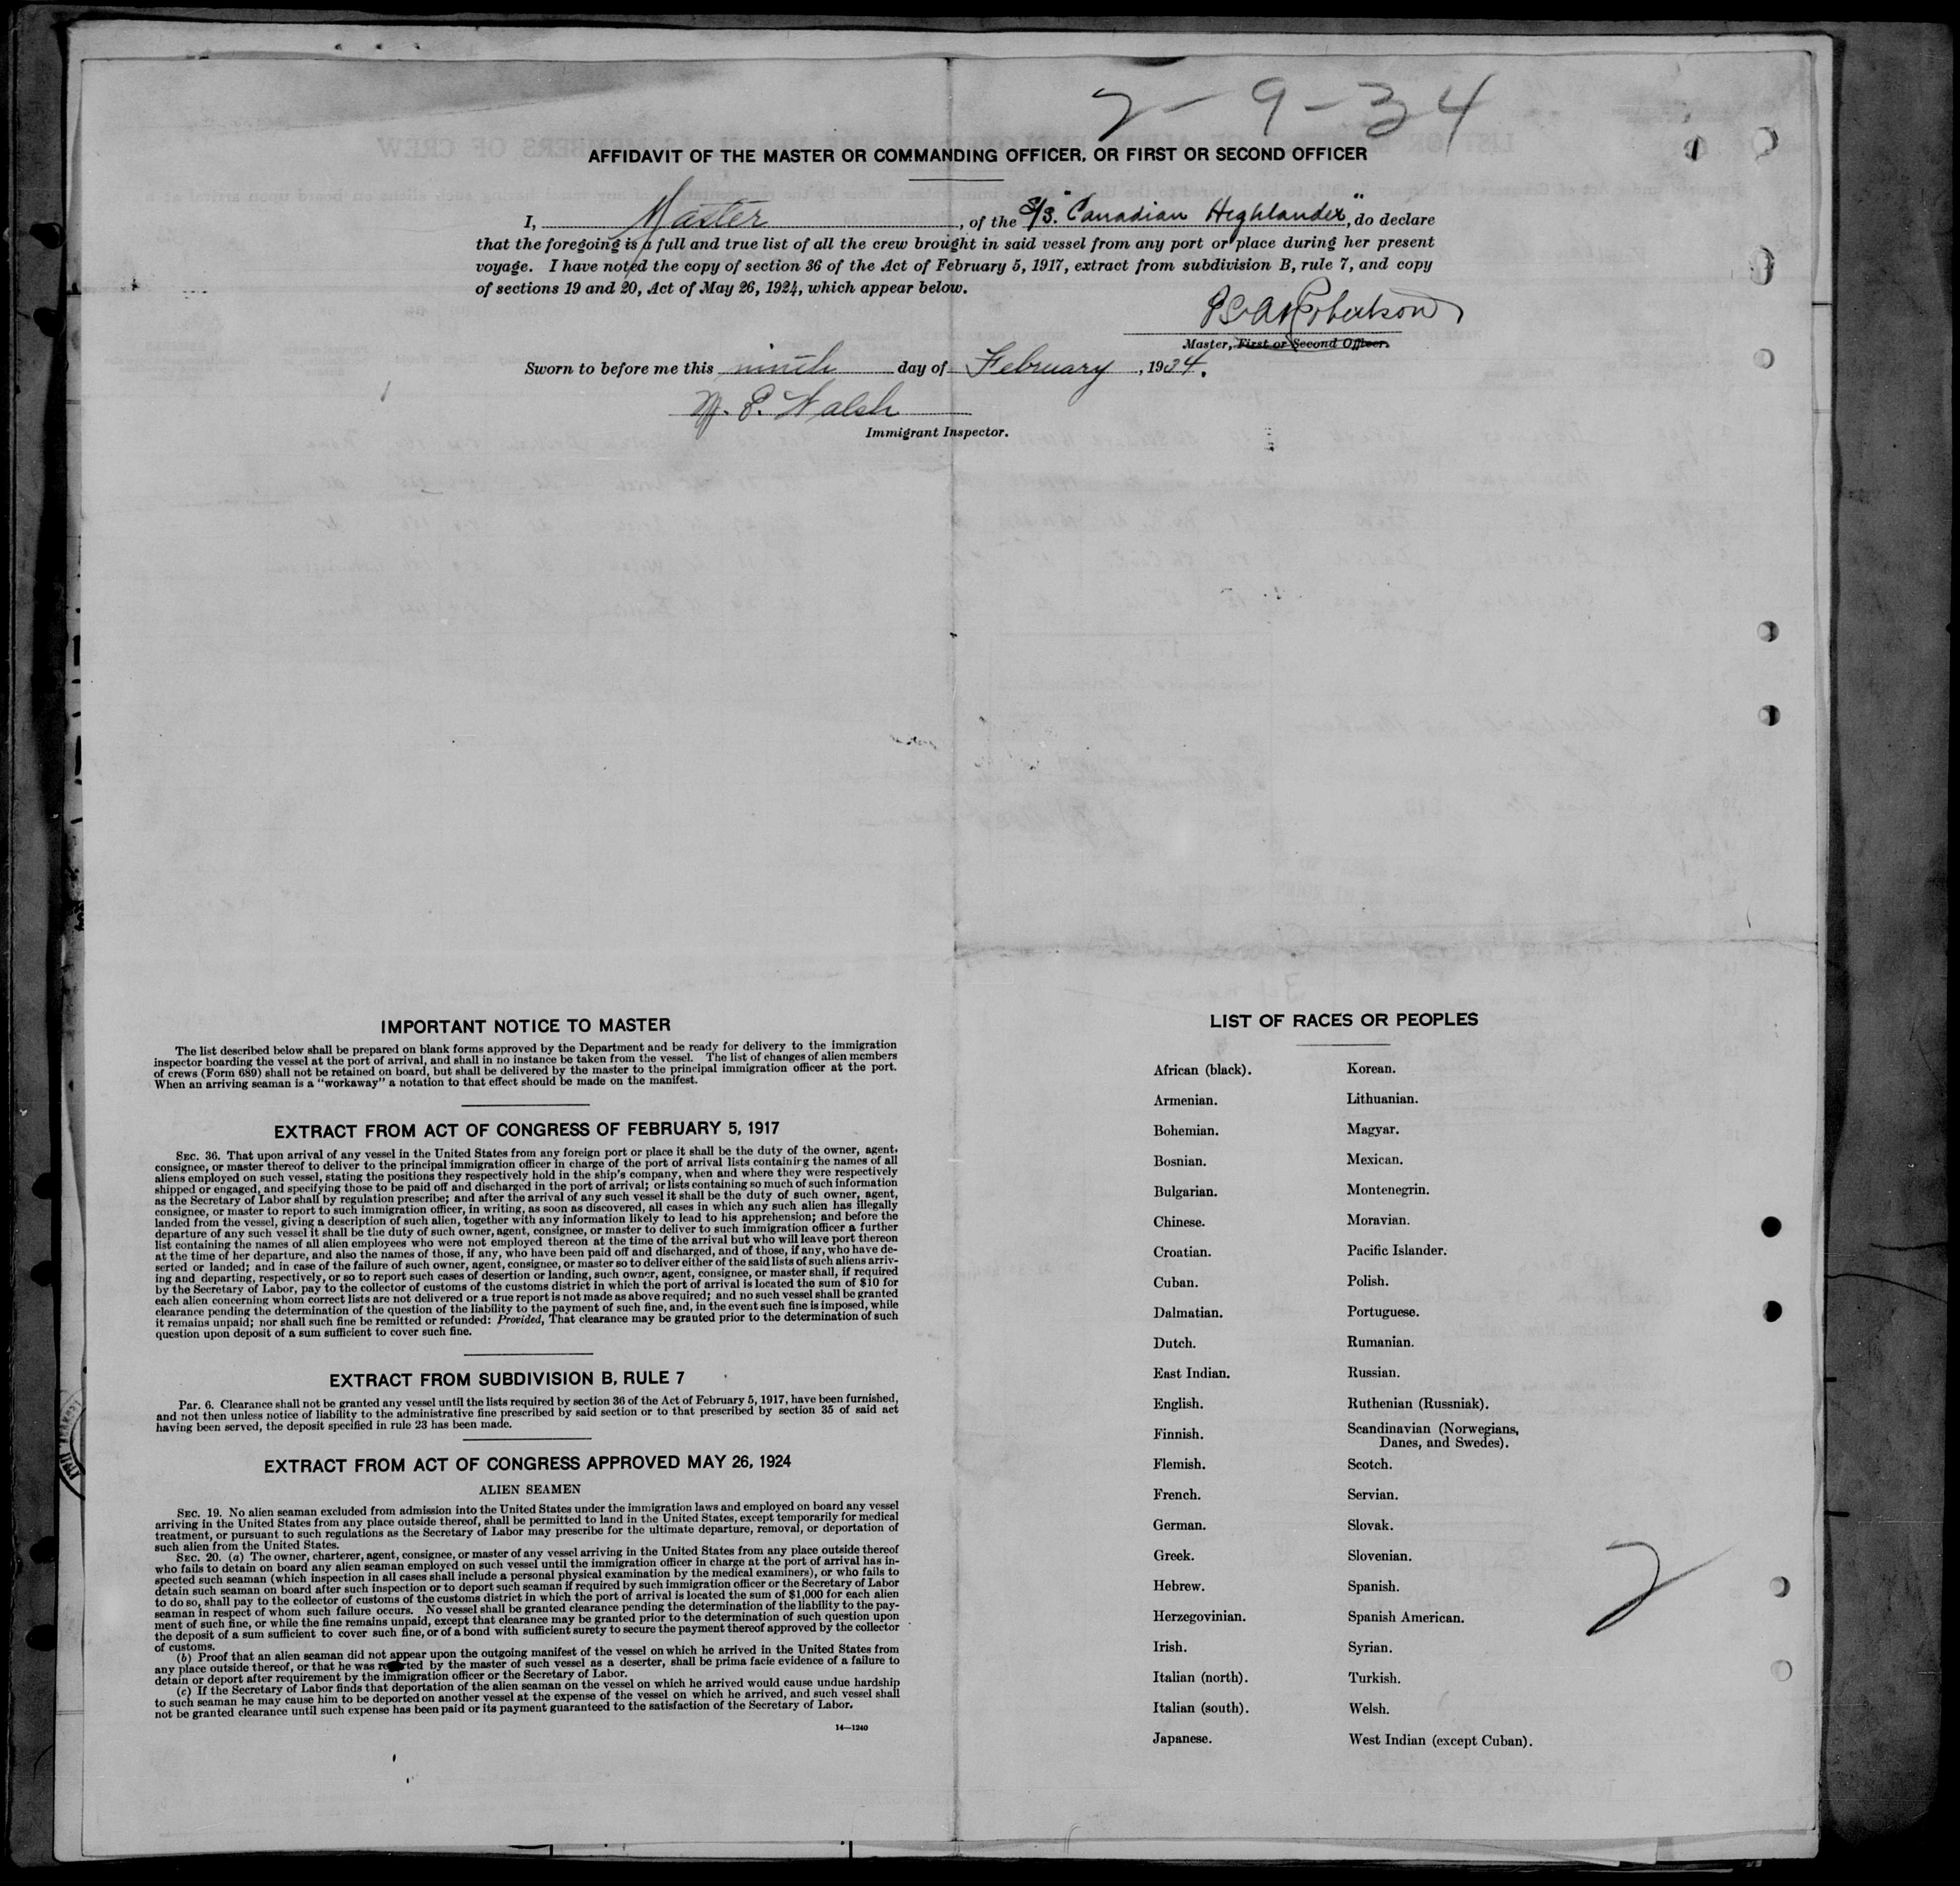 2-9-34
AFFIDAVIT OF THE MASTER OR COMMANDING OFFICER, OR FIRST OR SECOND OFFICER
I, Master, of the S/S. "Canadian Highlander", do declare
that the foregoing is a full and true list of all the crew brought in said vessel from any port or place during her present
voyage. I have noted the copy of section 36 of the Act of February 5, 1917, extract from subdivision B, rule 7, and copy
of sections 19 and 20, Act of May 26, 1924, which appear below.
Robertson
Master, First or Second Officer.
Sworn to before me this ninth day of February, 1934.
Walsh
Immigrant Inspector.
IMPORTANT NOTICE TO MASTER
The list described below shall be prepared on blank forms approved by the Department and be ready for delivery to the immigration
inspector boarding the vessel at the port of arrival, and shall in no instance be taken from the vessel. The list of changes of alien members
of crews (Form 689) shall not be retained on board, but shall be delivered by the master to the principal immigration officer at the port.
When an arriving seaman is a "workaway" a notation to that effect should be made on the manifest.
EXTRACT FROM ACT OF CONGRESS OF FEBRUARY 5, 1917
SEC. 36. That upon arrival of any vessel in the United States from any foreign port or place it shall be the duty of the owner, agent,
consignee, or master thereof to deliver to the principal immigration officer in charge of the port of arrival lists containing the names of all
aliens employed on such vessel, stating the positions they respectively hold in the ship's company, when and where they were respectively
shipped or engaged, and specifying those to be paid off and discharged in the port of arrival; or lists containing so much of such information
as the Secretary of Labor shall by regulation prescribe; and after the arrival of any such vessel it shall be the duty of such owner, agent,
consignee, or master to report to such immigration officer, in writing, as soon as discovered, all cases in which any such alien has illegally
landed from the vessel, giving a description of such alien, together with any information likely to lead to his apprehension; and before the
departure of any such vessel it shall be the duty of such owner, agent, consignee, or master to deliver to such immigration officer a further
list containing the names of all alien employees who were not employed thereon at the time of the arrival but who will leave port thereon
at the time of her departure, and also the names of those, if any, who have been paid off and discharged, and of those, if any, who have de-
serted or landed; and in case of the failure of such owner, agent, consignee, or master so to deliver either of the said lists of such aliens arriv-
ing and departing, respectively, or so to report such cases of desertion or landing, such owner, agent, consignee, or master shall, if required
by the Secretary of Labor, pay to the collector of customs of the customs district in which the port of arrival is located the sum of $10 for
each alien concerning whom correct lists are not delivered or a true report is not made as above required; and no such vessel shall be granted
clearance pending the determination of the question of the liability to the payment of such fine, and, in the event such fine is imposed, while
it remains unpaid; nor shall such fine be remitted or refunded: Provided, That clearance may be granted prior to the determination of such
question upon deposit of a sum sufficient to cover such fine.
EXTRACT FROM SUBDIVISION B, RULE 7
Par. 6. Clearance shall not be granted any vessel until the lists required by section 36 of the Act of February 5, 1917, have been furnished,
and not then unless notice of liability to the administrative fine prescribed by said section or to that prescribed by section 35 of said act
having been served, the deposit specified in rule 23 has been made.
EXTRACT FROM ACT OF CONGRESS APPROVED MAY 26, 1924
ALIEN SEAMEN
SEC. 19. No alien seaman excluded from admission into the United States under the immigration laws and employed on board any vessel
arriving in the United States from any place outside thereof, shall be permitted to land in the United States, except temporarily for medical
treatment, or pursuant to such regulations as the Secretary of Labor may prescribe for the ultimate departure, removal, or deportation of
such alien from the United States.
SEC. 20. (a) The owner, charterer, agent, consignee, or master of any vessel arriving in the United States from any place outside thereof
who fails to detain on board any alien seaman employed on such vessel until the immigration officer in charge at the port of arrival has in-
spected such seaman (which inspection in all cases shall include a personal physical examination by the medical examiners), or who fails to
detain such seaman on board after such inspection or to deport such seaman if required by such immigration officer or the Secretary of Labor
to do so, shall pay to the collector of customs of the customs district in which the port of arrival is located the sum of $1,000 for each alien
seaman in respect of whom such failure occurs. No vessel shall be granted clearance pending the determination of the liability to the pay-
ment of such fine, or while the fine remains unpaid, except that clearance may be granted prior to the determination of such question upon
the deposit of a sum sufficient to cover such fine, or of a bond with sufficient surety to secure the payment thereof approved by the collector
of customs.
(b) Proof that an alien seaman did not appear upon the outgoing manifest of the vessel on which he arrived in the United States from
any place outside thereof, or that he was reported by the master of such vessel as a deserter, shall be prima facie evidence of a failure to
detain or deport after requirement by the immigration officer or the Secretary of Labor.
(c) If the Secretary of Labor finds that deportation of the alien seaman on the vessel on which he arrived would cause undue hardship
to such seaman he may cause him to be deported on another vessel at the expense of the vessel on which he arrived, and such vessel shall
not be granted clearance until such expense has been paid or its payment guaranteed to the satisfaction of the Secretary of Labor.
14—1240
LIST OF RACES OR PEOPLES
African (black).
Armenian.
Bohemian.
Bosnian.
Bulgarian.
Chinese.
Croatian.
Cuban.
Dalmatian.
Dutch.
East Indian.
English.
Finnish.
Flemish.
French.
German.
Greek.
Hebrew.
Herzegovinian.
Irish.
Italian (north).
Italian (south).
Japanese.
Korean.
Lithuanian.
Magyar.
Mexican.
Montenegrin.
Moravian.
Pacific Islander.
Polish.
Portuguese.
Rumanian.
Russian.
Ruthenian (Russniak).
Scandinavian (Norwegians,
Danes, and Swedes).
Scotch.
Servian.
Slovak.
Slovenian.
Spanish.
Spanish American.
Syrian.
Turkish.
Welsh.
West Indian (except Cuban).
2